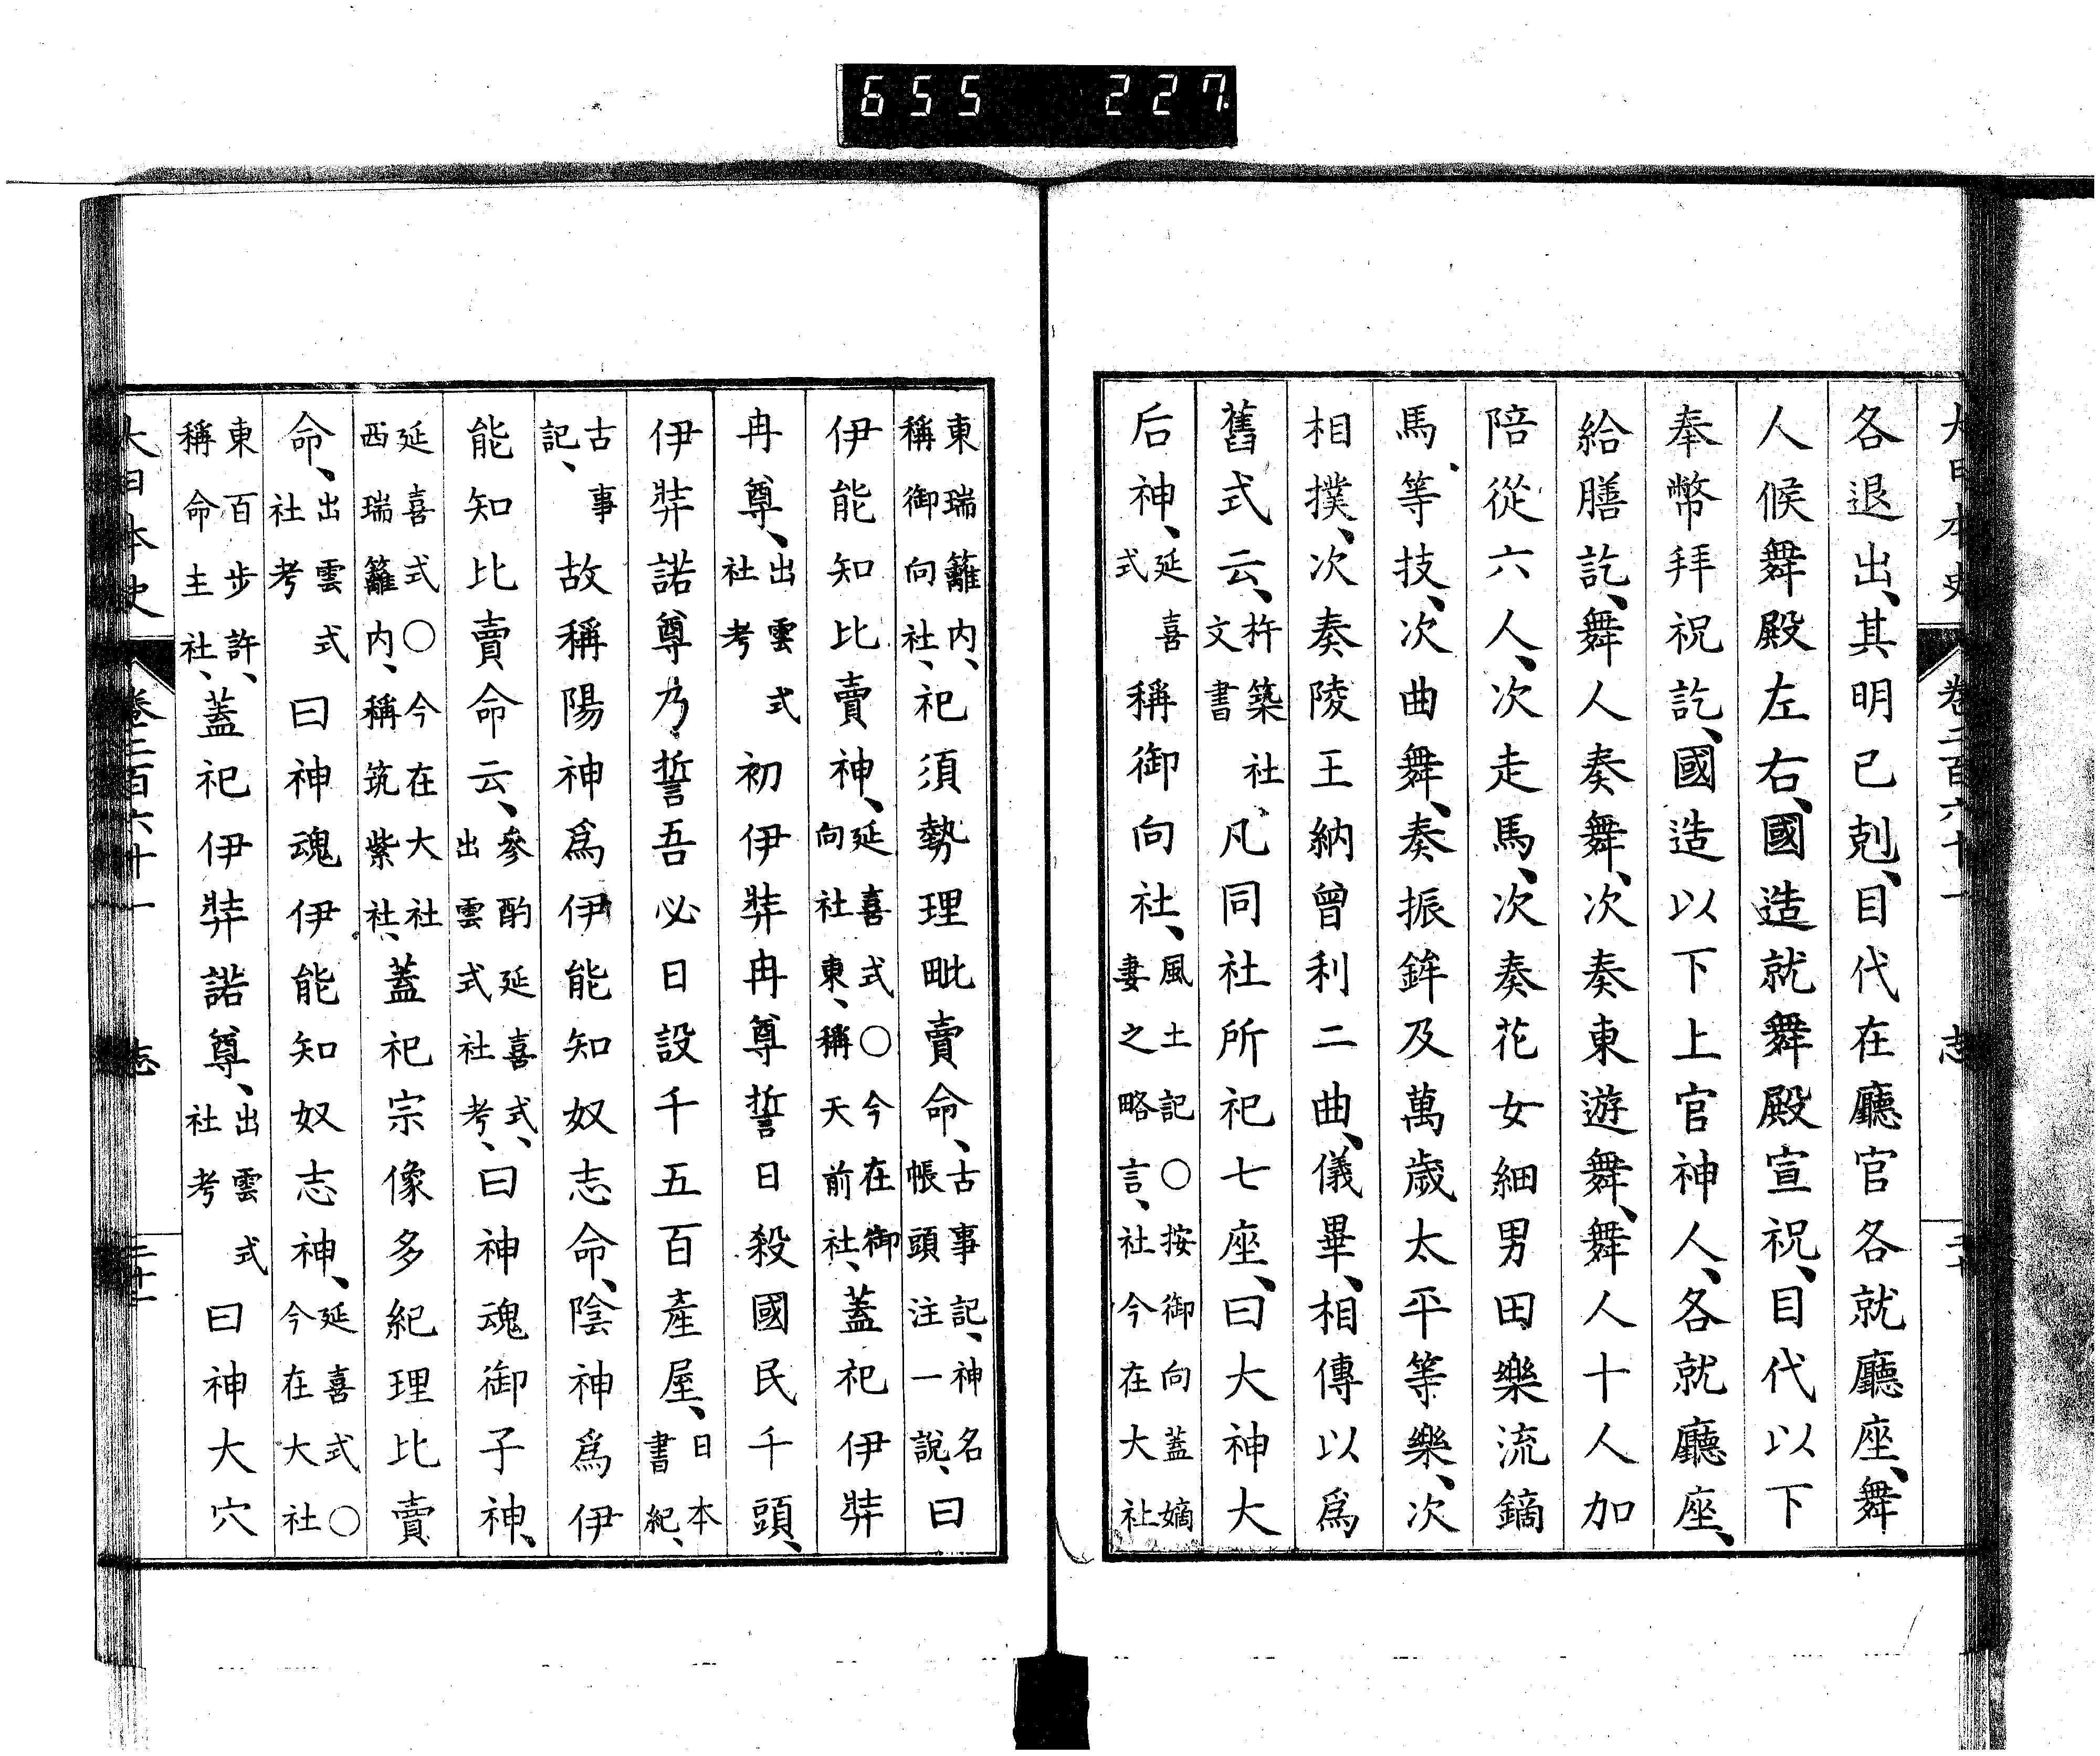 655 227
大日本史 卷二百六十一 志
各退出、其明已剋、目代在廳官各就廳座、舞
人候舞殿左右、國造就舞殿宣祝、目代以下
奉幣拜祝訖、國造以下上官神人、各就廳座、
給膳訖、舞人奏舞、次奏東遊舞、舞人十人加
陪從六人、次走馬、次奏花女細男田樂流鏑
馬等技、次曲舞、奏振鉾及萬歲太平等樂、次
相撲、次奏陵王納曾利二曲、儀畢、相傳以爲
舊式云、杵築社文書、凡同社所祀七座、曰大神大
后神、延喜式稱御向社、風土記○按御向蓋嫡妻之略言、社今在大社
東瑞籬内、稱御向社、祀須勢理毗賣命、古事記、神名帳頭注一說、曰
伊能知比賣神、延喜式○今在御向社東、稱天前社、蓋祀伊弉
冉尊、出雲式社考初伊弉冉尊誓日殺國民千頭、
伊弉諾尊乃誓吾必日設千五百產屋、日本書紀、
古事記、故稱陽神爲伊能知奴志命、陰神爲伊
能知比賣命云、參酌延喜式、出雲式社考、曰神魂御子神、
延喜式○今在大社西瑞籬内、稱筑紫社、蓋祀宗像多紀理比賣
命、出雲式社考曰神魂伊能知奴志神、延喜式○今在大社
東百步許、稱命主社、蓋祀伊弉諾尊、出雲式社考曰神大穴
大日本史 卷二百六十一 志 二十一